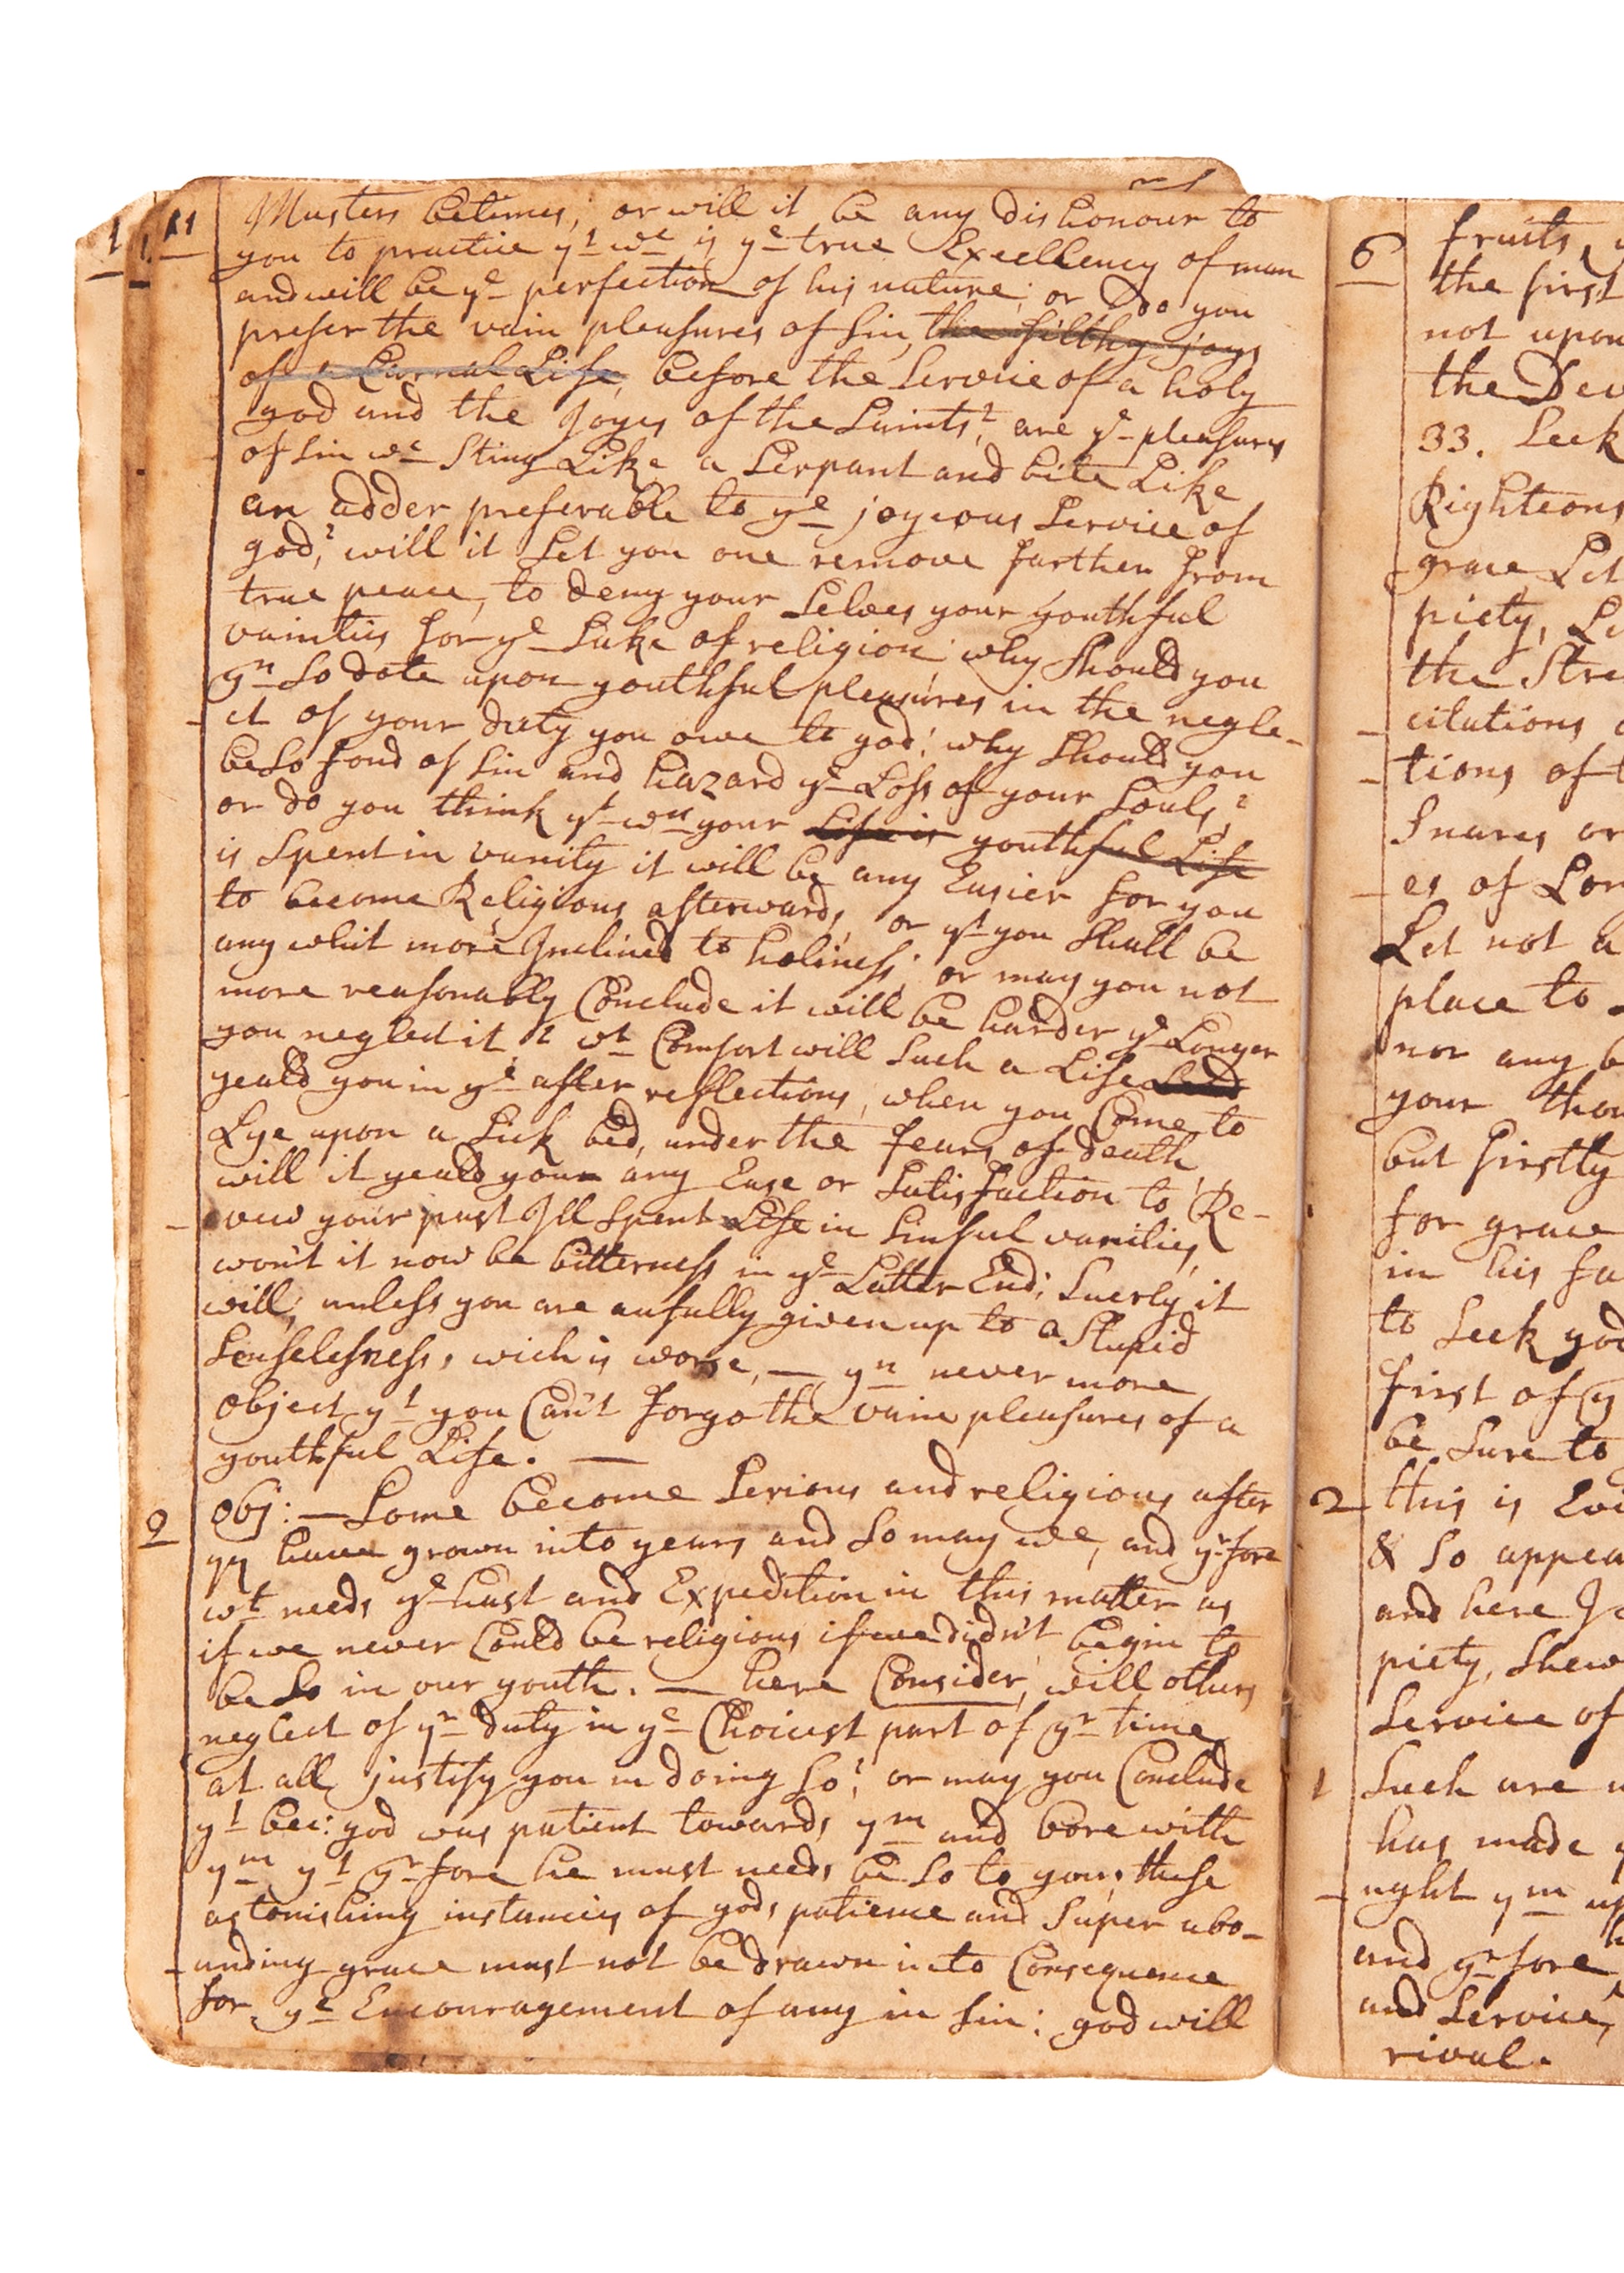 11
Masters betimes; or will it be any dishonour to
you to practice yt wc is ye true Excellency of man
and will be ye perfection of his nature; or Do you
prefer the vain pleasures of Sin, the filthy joys
of a Carnal Life, before the Service of a holy
god and the Joyes of the Saints? are ye pleasures
of Sin wc Sting Like a Serpant and bite Like
an adder preferable to ye joyeous Service of
god? will it Set you one remove farther from
true peace, to Deny your Selves your youthful
vainties for ye Sake of religion; why Should you
yn So dote upon youthful pleasures in the negle-
ct of your duty you owe to god; why Should you
be So fond of Sin and hazard ye Loss of your Souls?
or do you think yt wn your Life is youthful Life
is Spent in vanity it will be any Easier for you
to become Religious afterwards, or yt you Shall be
any whit more Inclined to holiness; or may you not
more reasonably Conclude it will be harder ye Longer
you neglect it? wt Comfort will Such a Life
yeald you in ye after reflections, when you Come to
Lye upon a Sick bed, under the fears of death,
will it yeald your any Ease or Satisfaction to Re-
veiw your past Ill Spent Life in Sinful vanities,
won't it now be bitterness in ye Latter End; Suerly it
will, unless you are aufully given up to a Stupid
Senselesness, wich is worse, — yn never more
object yt you Can't forgo the vain pleasures of a
youthful Life. —
2 Obj: — Some become Serious and religious after
yy have grown into years and So may we, and yrfore
wt needs ye hast and Expedition in this matter as
if we never Could be religious if we didn't begin to
be So in our youth. — here Consider, will others
neglect of yr duty in ye Choicest part of yr time
at all justify you in doing So? or may you Conclude
yt bec: god was patient towards ym and bore with
ym yt yrfore he must needs be So to you; these
astonishing instancies of gods patience and Super abo-
unding grace must not be drawn into Consequence
for ye Encouragement of any in Sin; god will
6 fruits,
the first
not upon
the
33. Seek
Righteous
grace Let
piety,
the
citations
tions of
Snares or
es of
Let not a
place to
nor any
your
but firstly
for grace
in his
to Seek god
first of
be Sure to
2 this is
& So
and here
piety, Shew
Service of
1 Such are
has made
ught ym up
and yrfore
and Service,
rival.